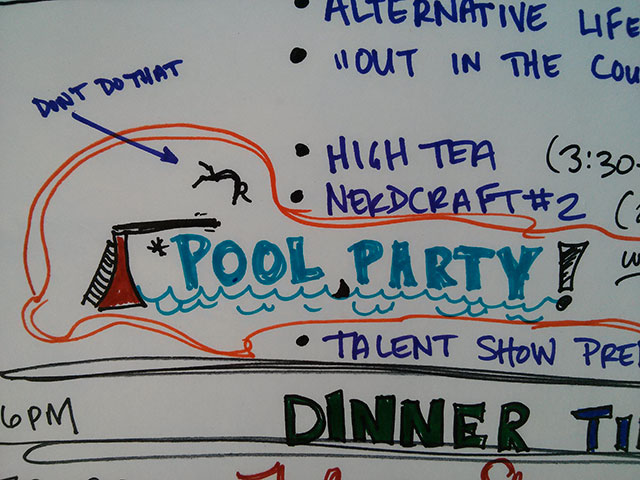 • ALTERNATIVE LIFE
• "OUT IN THE COU
DON'T DO THAT
• HIGH TEA (3:30-
• NERDCRAFT #2 (2
* POOL PARTY!
• TALENT SHOW PREP
6PM DINNER TI